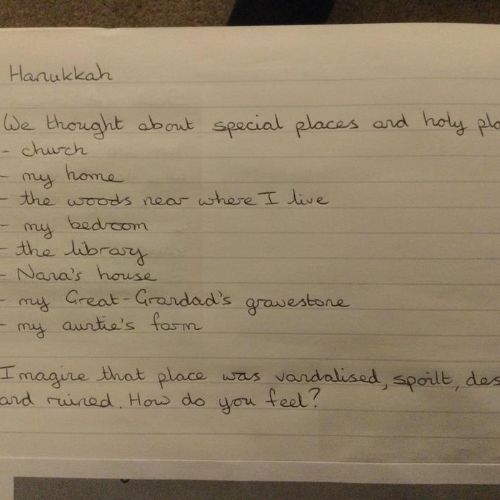 Hanukkah
We thought about special places and holy
- church
- my home
- the woods near where I live
- my bedroom
- the library
- Nana's house
- my Great-Grandad's gravestone
- my auntie's farm
I magine that place was vandalised, spoilt,
and ruined. How do you feel?